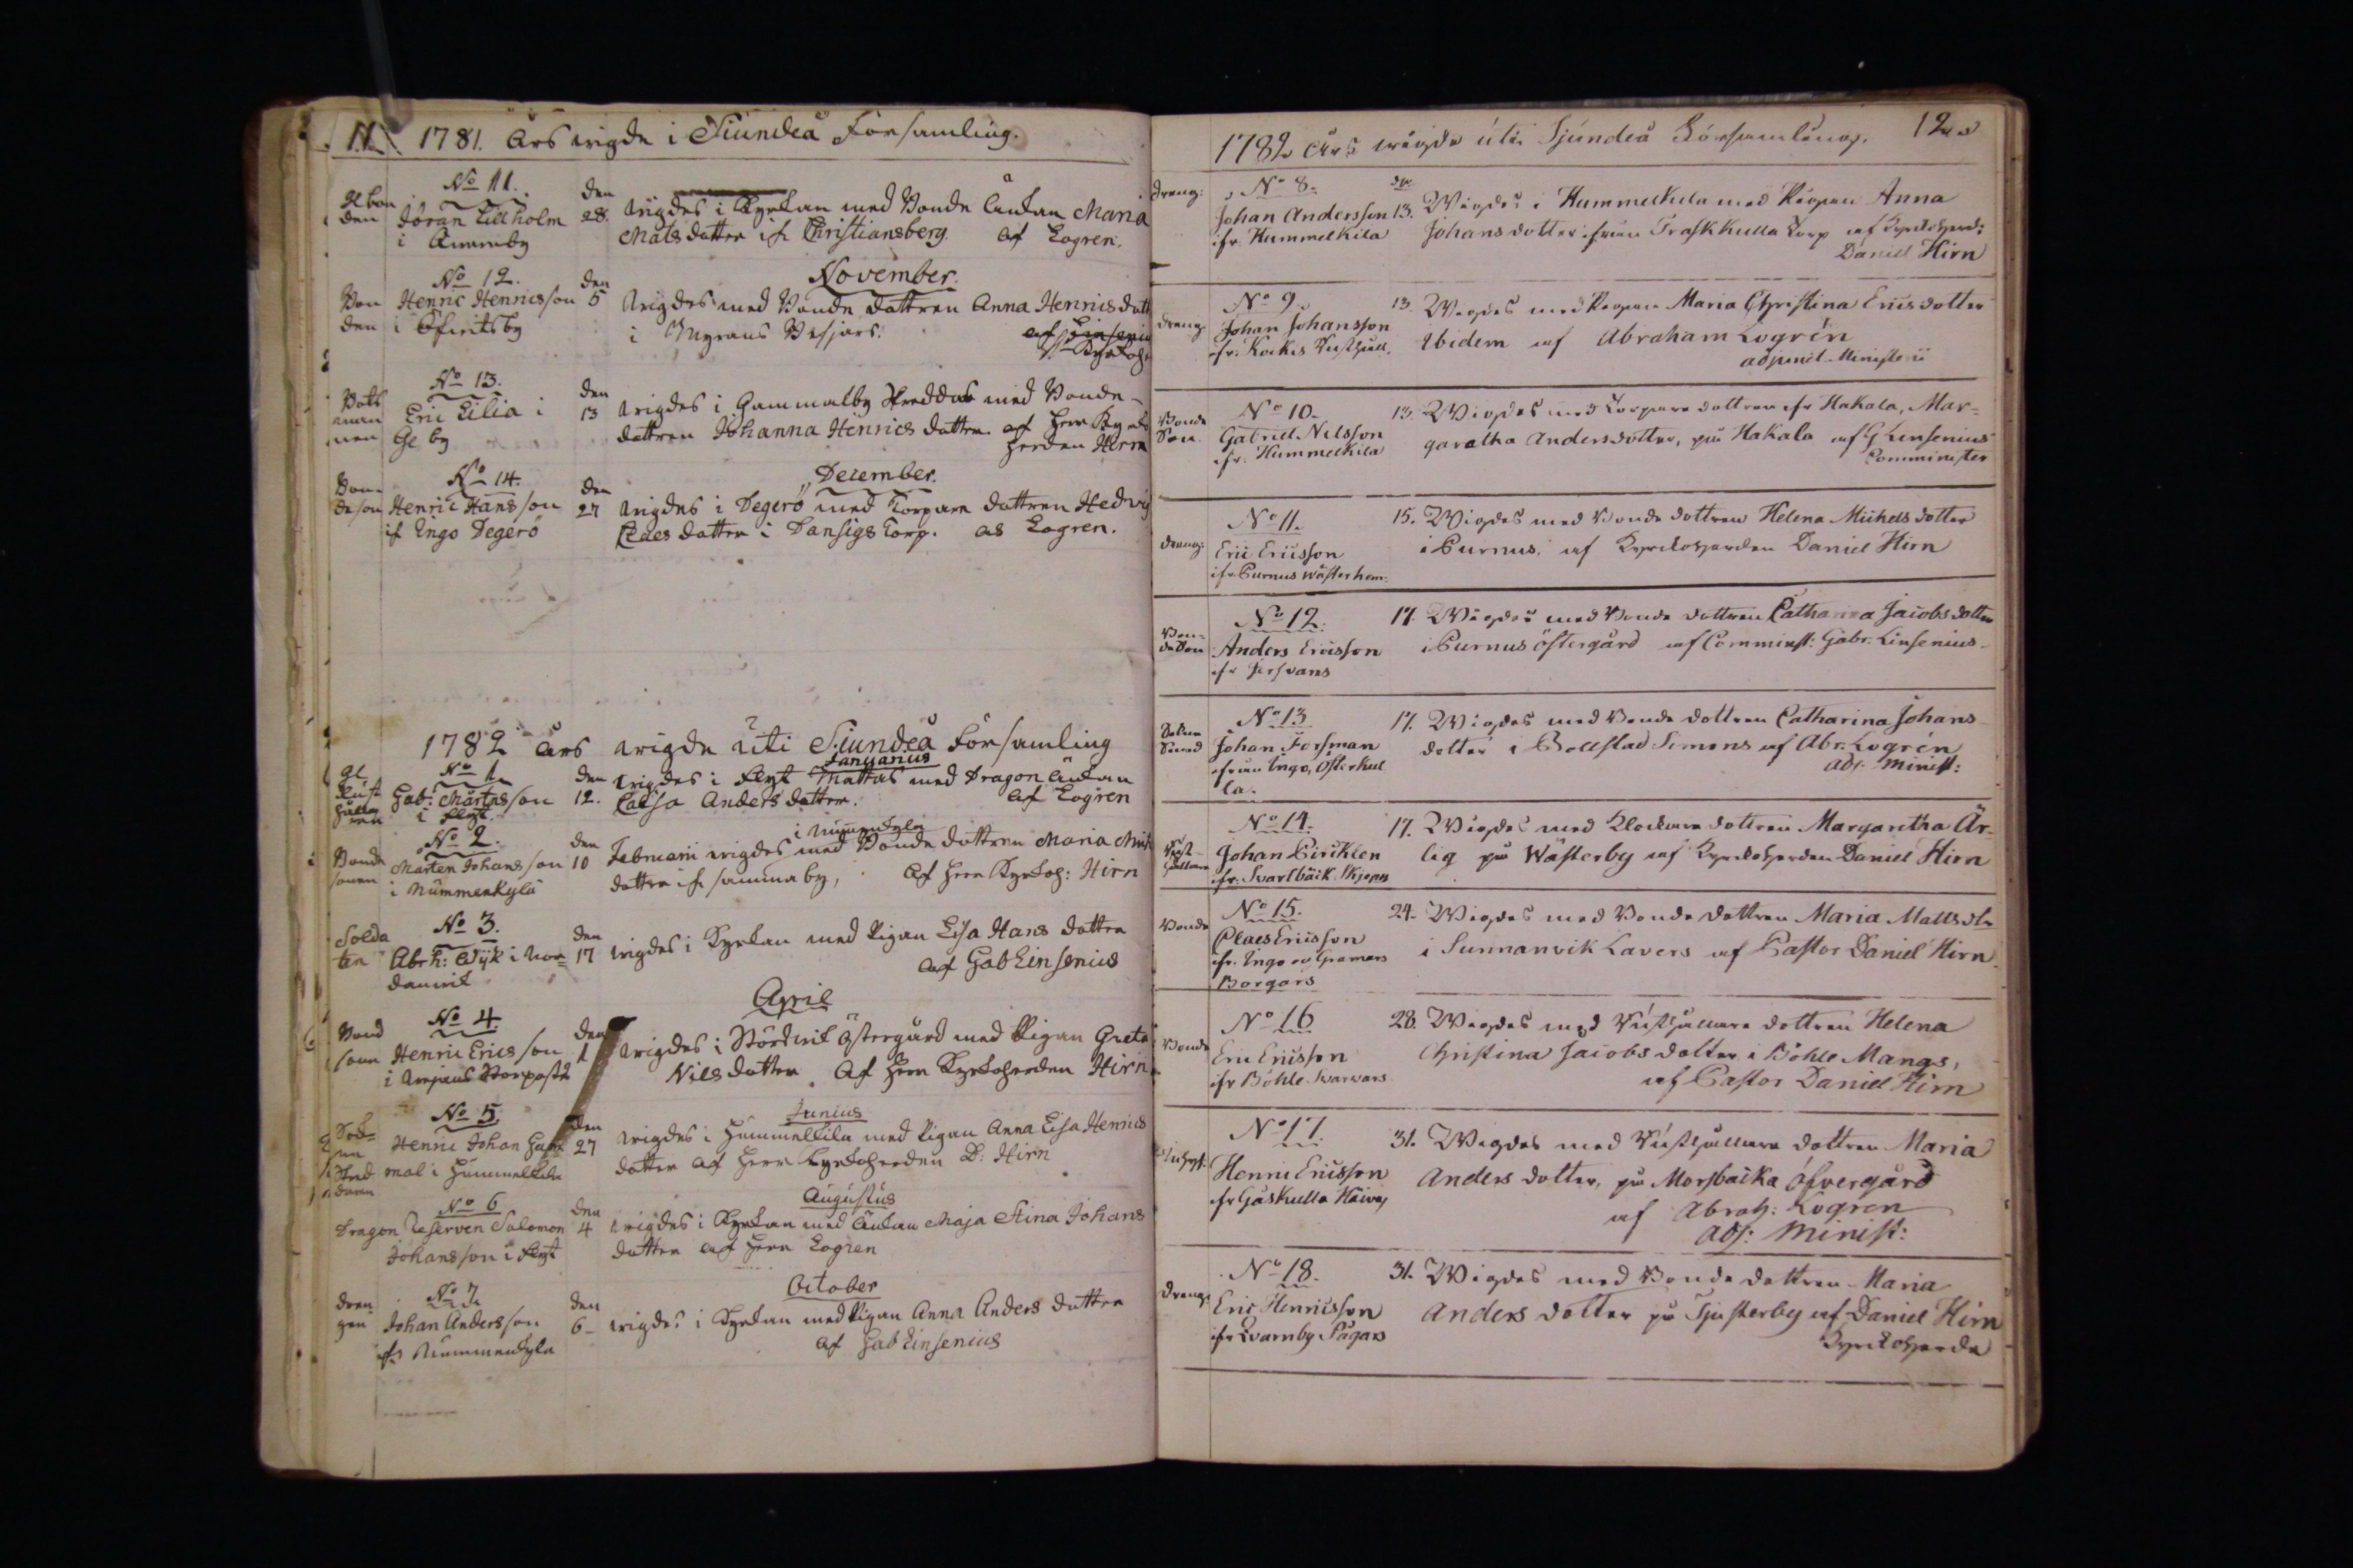 11. 1781. Års wigde i Siundeå Församling.
No 11.
Gl bon
den
Jöran Lillholm
i Qvarnby
den
28.
wigdes i Kyrkan med Bonde Änkan Maria
Mats dotter ifr Christiansberg. af Logren.
No 12.
November.
Bon
den
Henric Henricsson
i
den
5
wigdes med Bonde dottren Anna Henrics dott
i Myrans
No 13.
Båts
man
nen
Eric Lilia i
by
den
13
wigdes i Gammalby med Bonde
dottren Johanna Henrics dotter. af Herr Kyrko
herden Hirn
No 14.
December.
Bon-
de son
Henric Hansson
if Ingo Degerö
den
27
wigdes i Degerö med Torpare dottren Hedvig
Claes dotter i Dansigs Torp. as Logren.
1782 Års wigde uti Siundeå Församling
No 1.
Januarius
Gl
Rust
hålla
ren
Gab: Mårtensson
i Flyt.
den
12.
wigdes i Flyt Mattas med Dragon Änkan
Caisa Anders dotter. af Logren
No 2.
i Nummenkylä
Bonde
sonen
Mårten Johansson
i Nummenkylä
den
10
Februarii wigdes med Bonde dottren Maria Mich
dotter ifr samma by, af Herr Kyrkoh: Hirn
No 3.
Solda
ten
Abrh: Wijk i Nor=
danvik
den
17
wigdes i Kyrkan med Pigan Lisa Hans dotter
af Gab Linsenius
April
No 4.
Bond
sonn
Henric Ericsson
i
den
1
wigdes i Störsvik Östergård med Pigan Greta
Nils dotter af Herr Kyrkoherden Hirn
Junius
No 5.
Henric Johan
i Hummelkila
den
27
wigdes i Hummelkila med Pigan Anna Lisa Henrics
dotter af Herr Kyrkoherden D: Hirn
Augustus
No 6
Dragon Reserven Salomon
Johansson i Flyt
den
4
wigdes i Kyrkan med Änkan Maja Stina Johans
dotter af Herr Logren
October
No 7.
dren
gen
Johan Andersson
ifr Nummenkyla
den
6-
wigdes i Kyrkan med Pigan Anna Anders dotter
af Gab Linsenius
1782 Års wigde uti Sjundeå Församling. 12
dreng:
No 8.
Johan Andersson
ifr. Hummelkila
den
13.
Wigdes i Hummelkila med Pigan Anna
Johans dotter ifrån Traskkulla Torp af Kyrkoherd:
Daniel Hirn
dreng:
No 9.
Johan Johansson
ifr. Kockis Rusthåll.
13.
Wigdes med Pigan Maria Christina Erics dotter
Ibidem af Abraham Logrén
adjunct Ministerii
Bonde
Son
No 10.
Gabriel Nilsson
ifr. Hummelkila
13.
Wigdes med Torpare dottren ifr Hakala, Mar=
garetha Anders dotter, på Hakala af G Linsenius
Comminister
dreng:
No 11.
Eric Ericsson
ifr. Purnus Wästerhem.
15.
Wigdes med Bonde dottren Helena Michels dotter
i Purnus, af Kyrkoherden Daniel Hirn
Bon=
de Son
No 12.
Anders Ericsson
ifr
17.
Wigdes med Bonde dottren Catharina Jacobs dotter
i Purnus östergård af Comminist: Gabr: Linsenius
No 13
Johan Forsman
ifrån Ingo, Österkul
la.
17.
Wigdes med Bonde dottren Catharina Johans
dotter i Bollstad Simons af Abr. Logrén
Adj. Minist:
Rust=
hållare
No 14.
Johan
ifr. Svartbäck
17.
Wigdes med Klockare dottren Margaretha Är-
lig på Wästerby af Kyrkoherden Daniel Hirn
Bonde
No 15.
Claes Ericsson
ifr. Ingo
Borgars
24.
Wigdes med Bonde dottren Maria Matts dr
i Sunnanvik Lavers af Pastor Daniel Hirn
Bonde
No 16
Eric Ericsson
ifr Böhle Svarvars
28.
Wigdes med Rusthållare dottren Helena
Christina Jacobs dotter i Böhle Mangs,
af Pastor Daniel Hirn
No 17.
Henric Ericsson
ifr Gåskulla
31.
Wigdes med Rusthållare dottren Maria
Anders dotter, på Morsbacka öfvergård
af Abrah: Logren
Adj: Minist:
dreng:
No 18.
Eric Henricsson
ifr Qvarnby Pågars
31.
Wigdes med Bonde dottren Maria
Anders dotter på Tjusterby af Daniel Hirn
Kyrkoherde